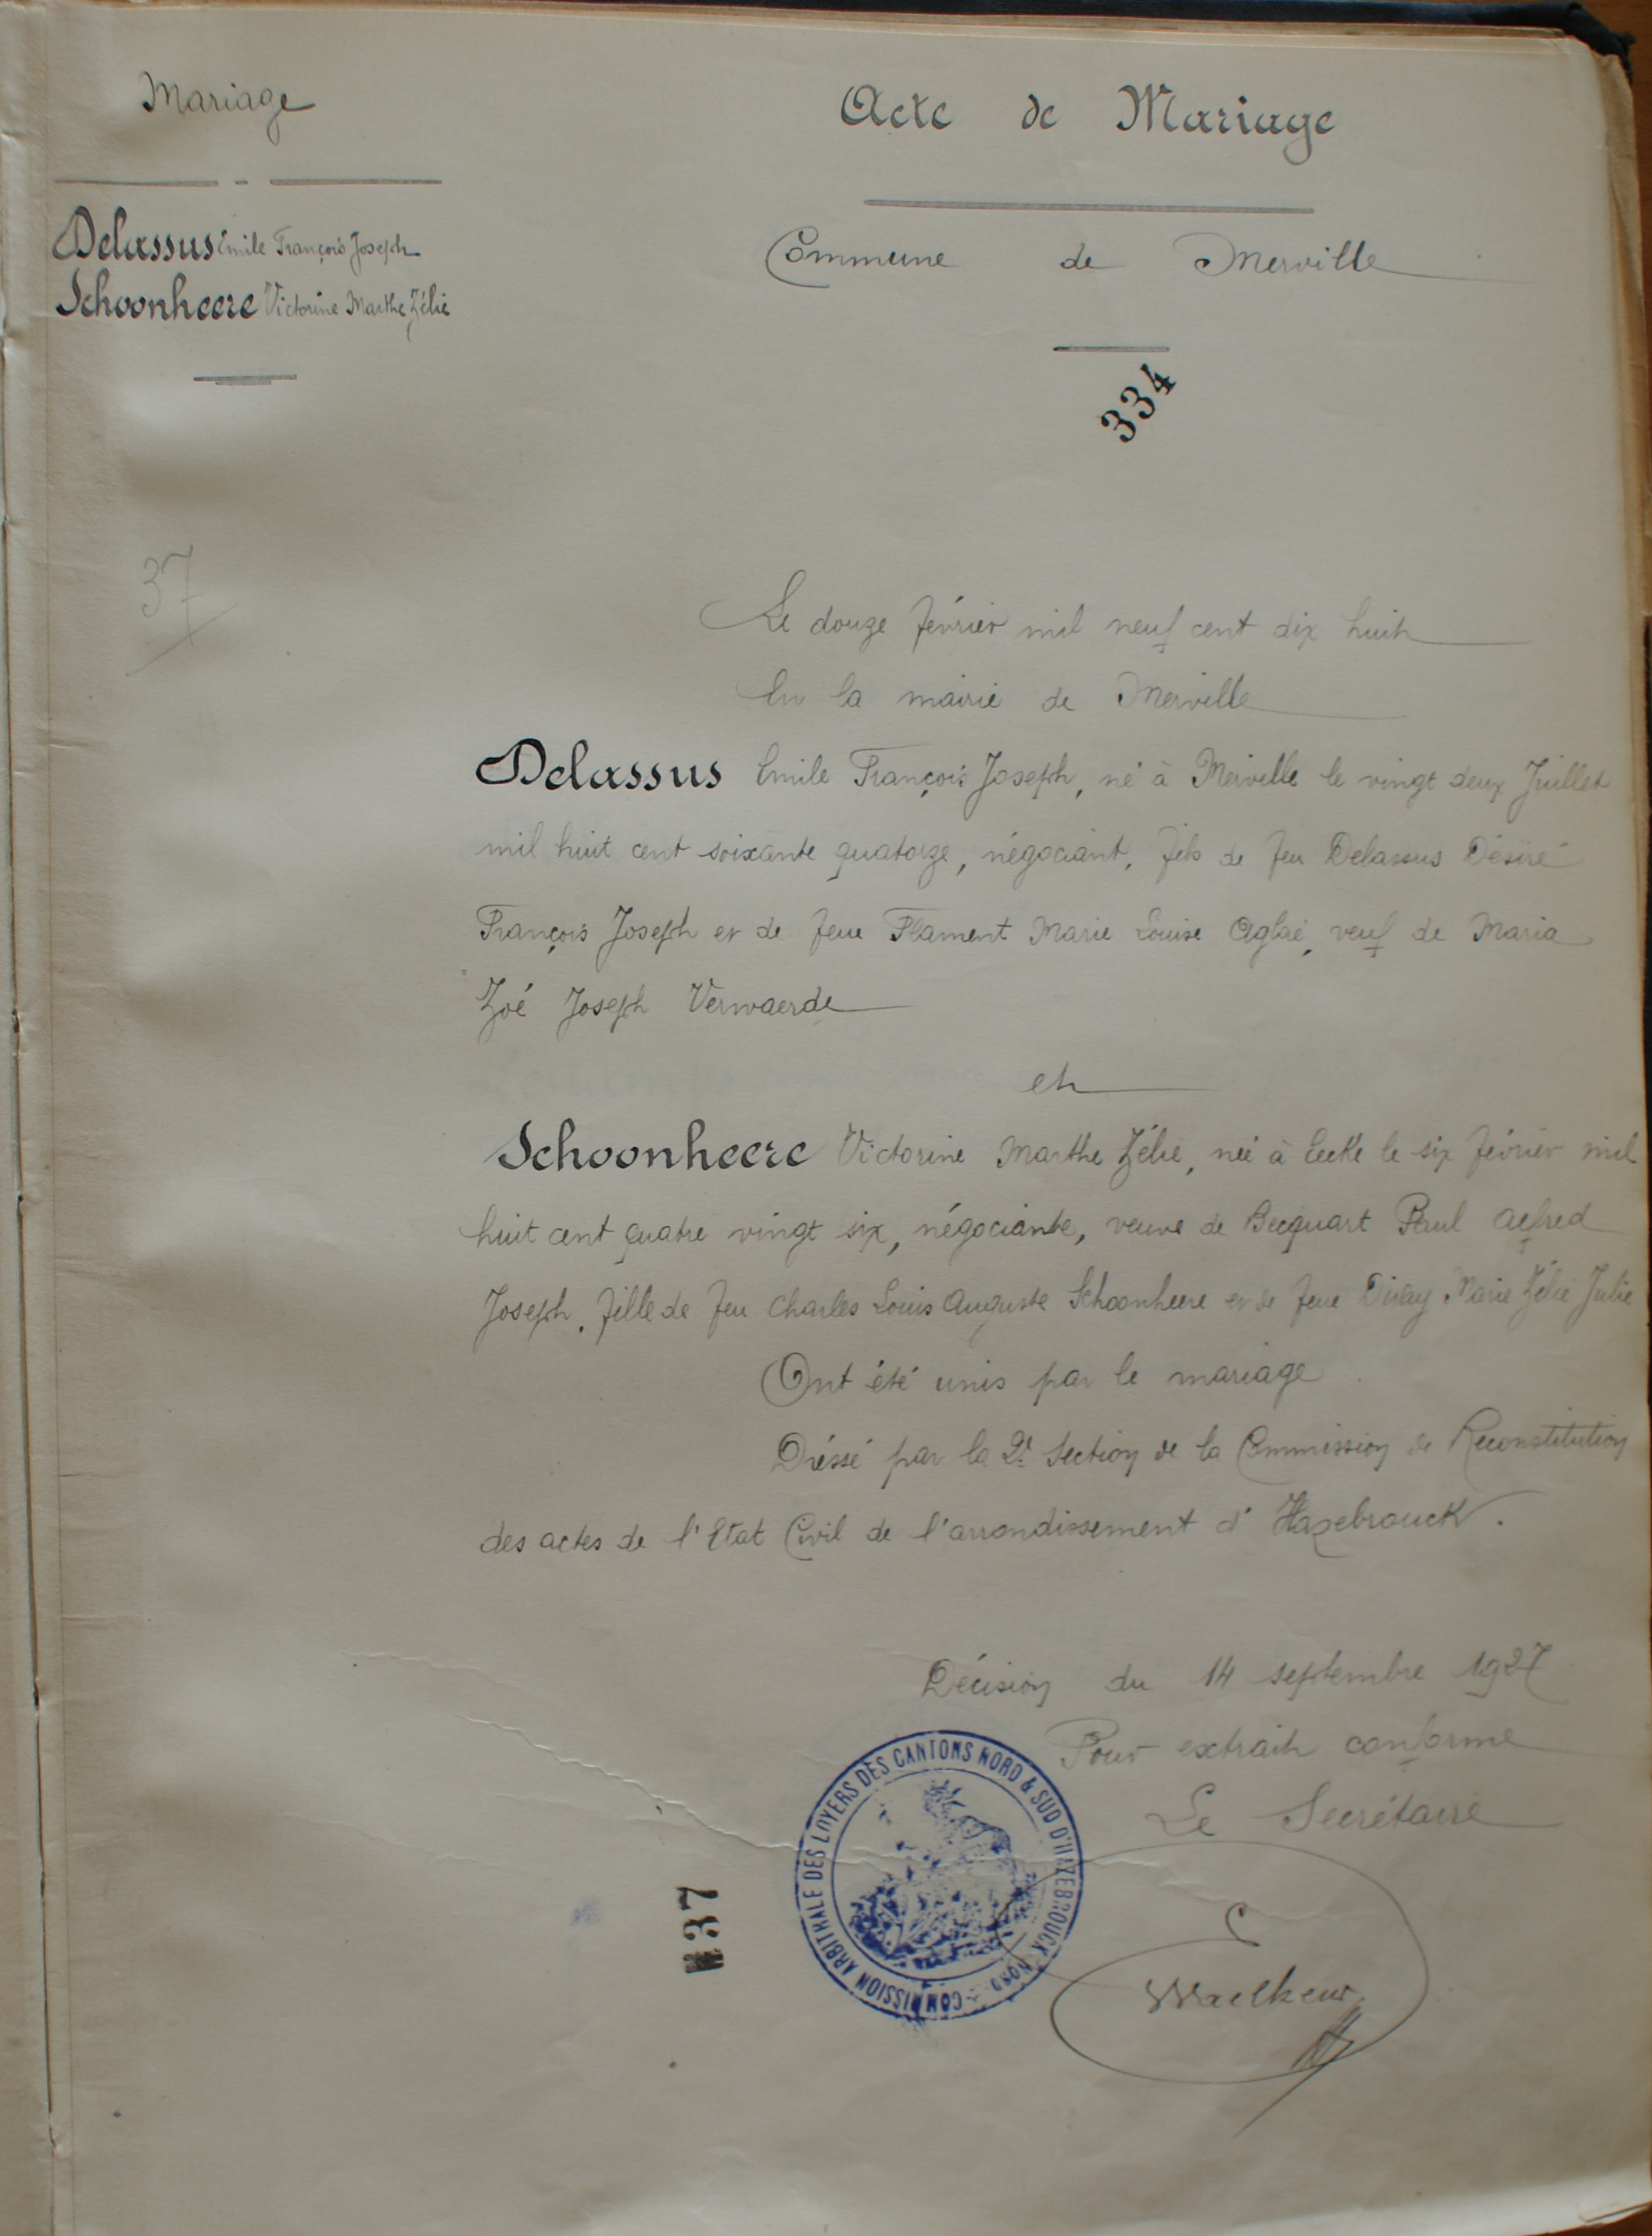 Mariage
Delassus Emile François Joseph
Schoonheere Victorine Marthe Zélie
37
Acte de Mariage
Commune de Merville
334
Le douze février mil neuf cent dix huit
En la mairie de Merville
Delassus Emile François Joseph, né à Merville le vingt deux Juillet
mil huit cent soixante quatorze, négociant, fils de feu Delassus Désiré
François Joseph et de feue Flament Marie Louise Aglaé, veuf de Maria
Zoé Joseph Verwaerde
et
Schoonheere Victorine Marthe Zélie, née à Eecke le six février mil
huit cent quatre vingt six, négociante, veuve de Becquart Paul Alfred
Joseph, fille de feu Charles Louis Auguste Schoonheere et de feue Marie Zélie Julie
Ont été unis par le mariage
Dréssé par la 2e Section de la Commission de Reconstitution
des actes de l'Etat Civil de l'arrondissement d'Hazebrouck.
Décision du 14 septembre 1927
Pour extrait conforme
Le Secrétaire
COMMISSION ARBITRALE DES LOYERS DES CANTONS NORD & SUD D'HAZEBROUCK NORD
37